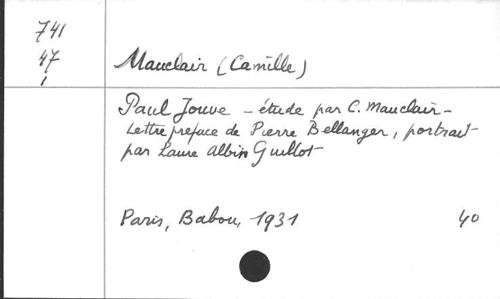 741
47
1
Mauclair (Camille)
Paul Jouve - étude par C. Mauclair -
Lettre préface de Pierre Bellanger, portrait
par Laure Albin Guillot
Paris, Babou, 1931 40